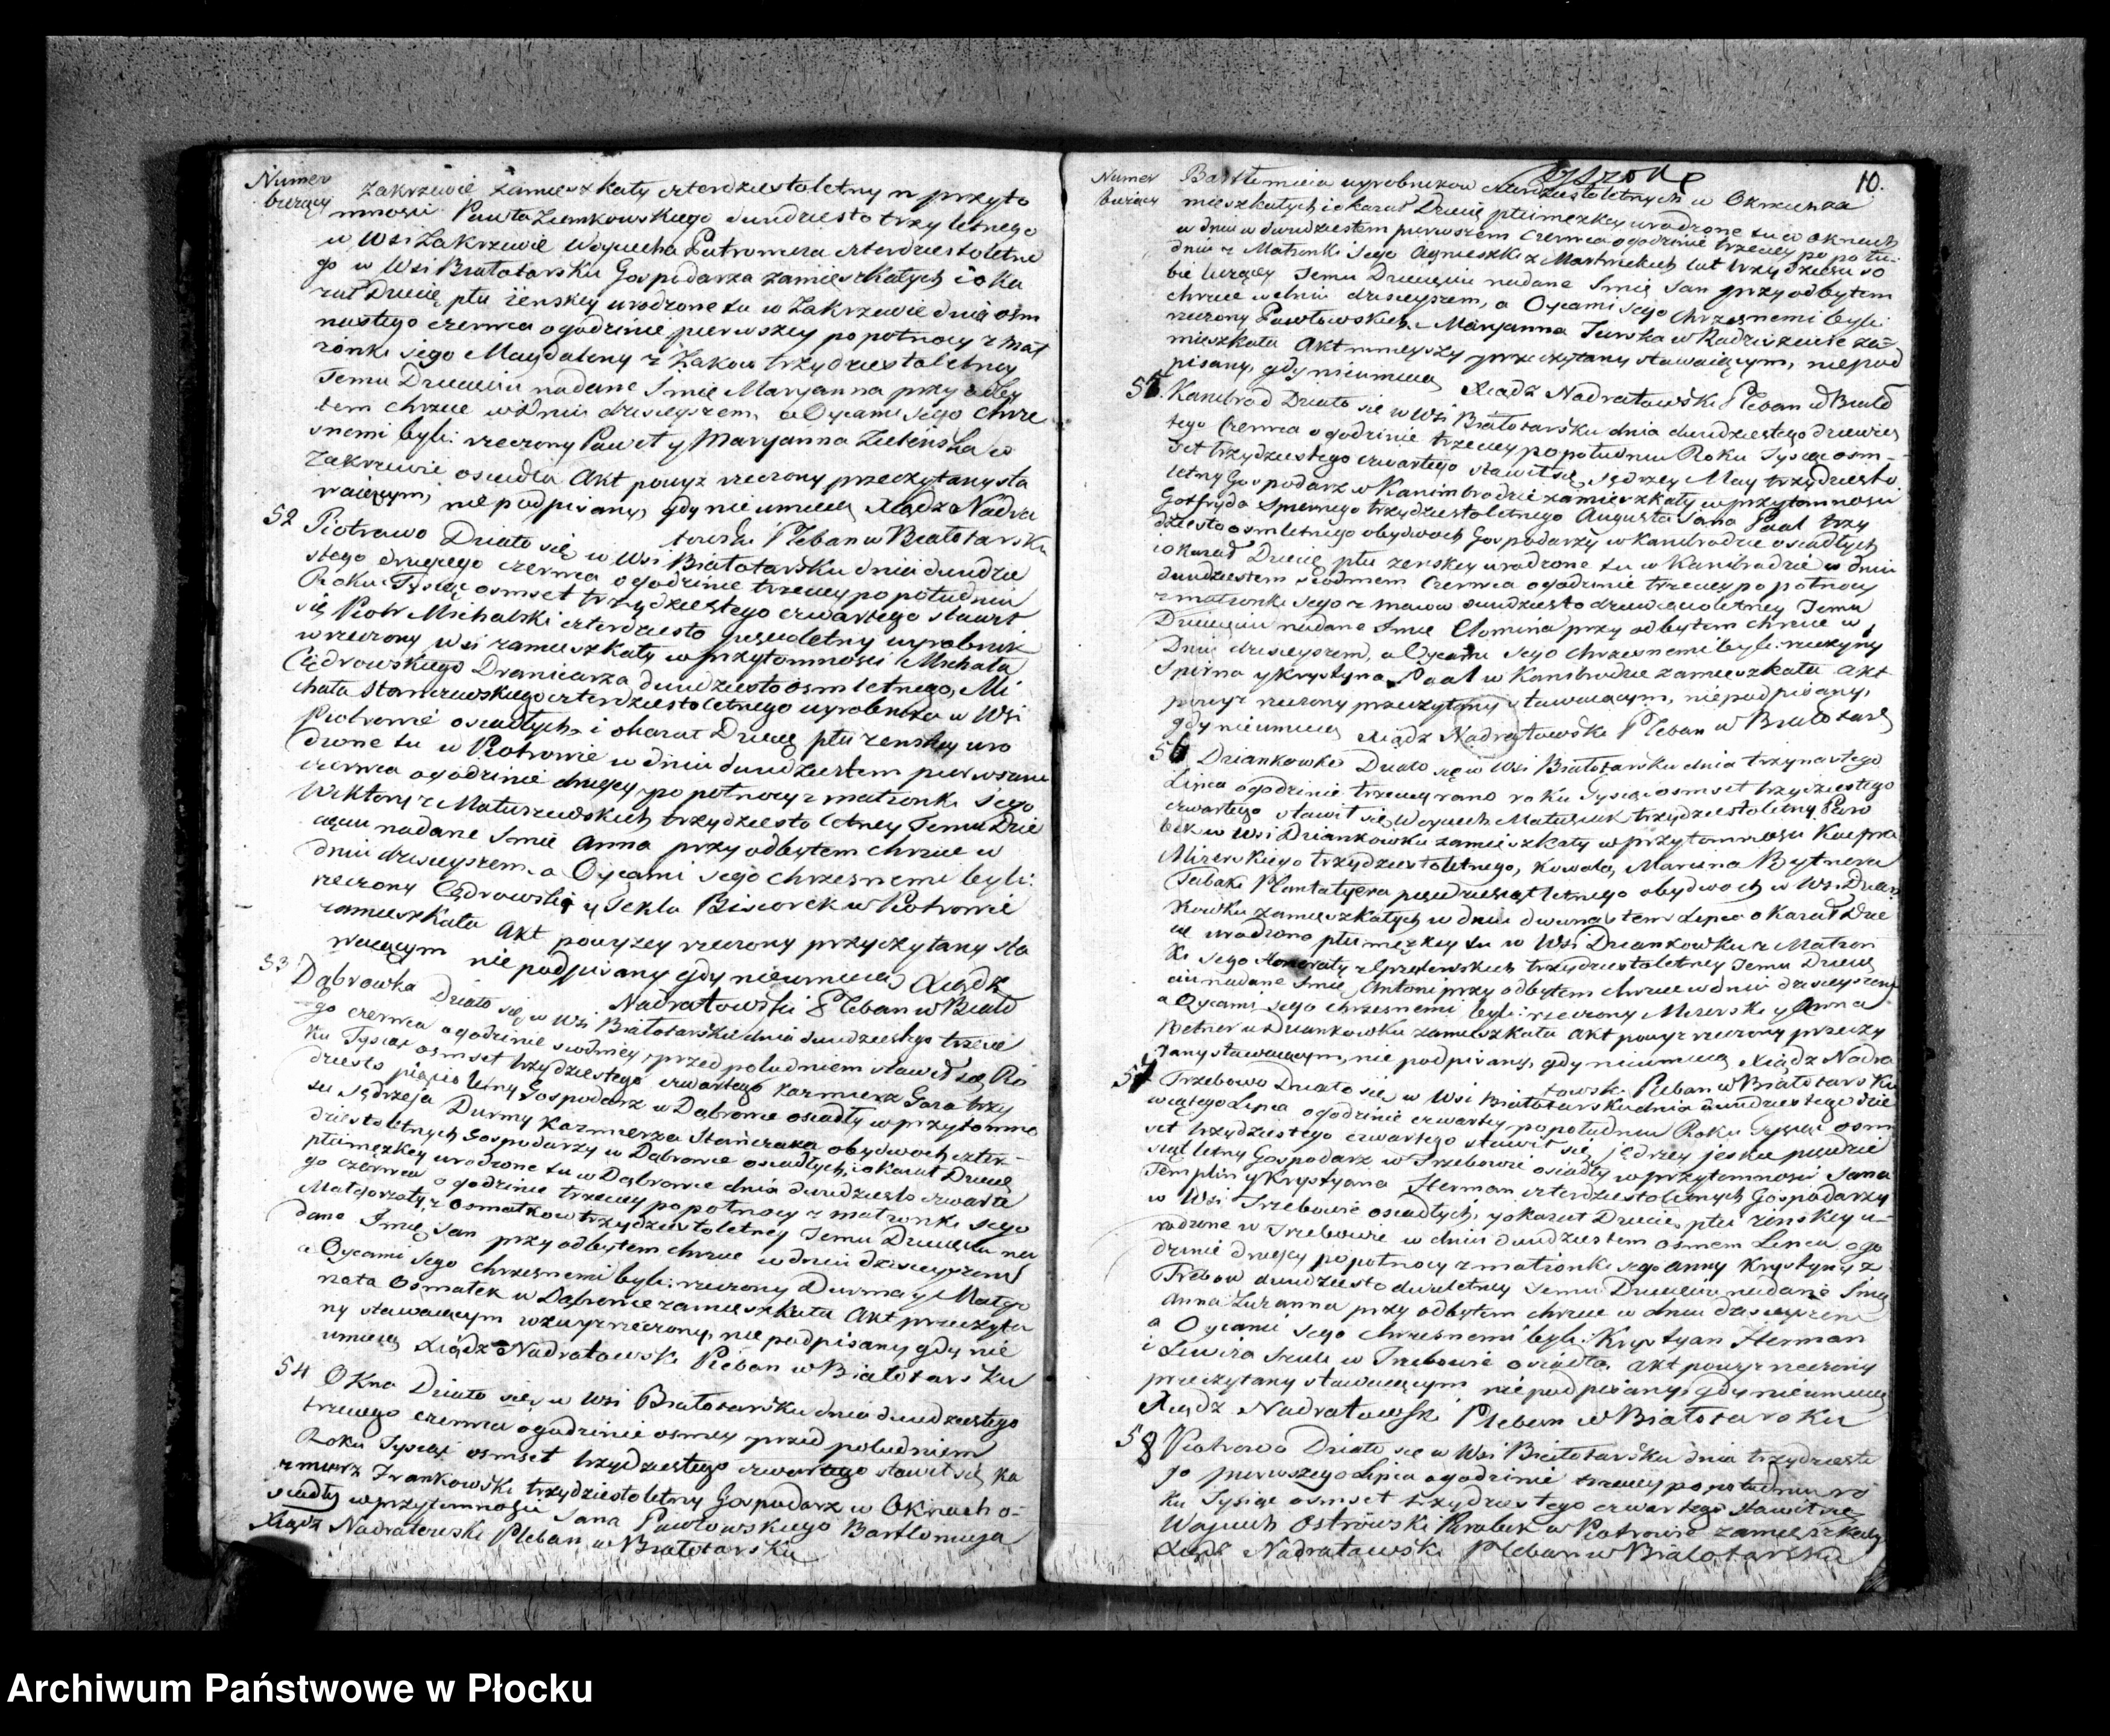 Numer
bieżący
Zakrzewie zamieszkały czterdziestoletny w przyto
mnosci Pawła Zienkowskiego dwudziesto trzy letnego
w Wsi Zakrzewie Woyciecha Patromera czterdziestoletne
go w Wsi Białotarsku Gospodarza zamieszkałych i oka
zał Dziecię płci żenskiey urodzone tu w Zakrzewie dnia ośm
nastego czerwca o godzinie pierwszey po połnocy z mał
żonki jego Magdaleny z Żaków trzydziestoletney
Temu Dziecięciu nadane Jmię Maryanna przy odby
tem chrzcie w dniu dzisieyszem, a Oycami jego chrze
snemi byli: rzeczony Paweł y Maryanna Zielińska w
Zakrzewie osiadła Akt powyz rzeczony przeczytany sta
waiącym, nie podpisany, gdy nieumieią Xiądz Nadra
towski Pleban w Białotarsku
52 Piotrowo Działo się w Wsi Białotarsku dnia dwudzie
stego drugiego czerwca o godzinie trzeciey popołudniu
Roku Tysiąc osmset trzydziestego czwartego stawił
się Piotr Michalski czterdziesto letny wyrobnik
w rzeczony wsi zamieszkały w przytomnosci Michała
Cędrowskiego Dranicarza dwudziesto ośm letnego, Mi
chała Staniszewskiego czterdziestoletnego wyrobnika w Wsi
Piotrowie osiadłych, i okazał Dziecię płci zenskiey uro
dzone tu w Piotrowie w dniu dwudziestem pierwszem
czerwca o godzinie drugiey po połnocy z małzonki jego
Wiktoryi z Matuszewskich trzydziesto letney Temu Dzie
cięciu nadane Jmie Anna przy odbytem chrzcie w
dniu dzisieyszem, a Oycami jego chrzesnemi byli:
rzeczony Cędrowski y Tekla Biscorek w Piotrowie
zamieszkała Akt powyzey rzeczony przyczytany sta
waiącym nie podpisany gdy nieumieią Xiądz
Nadratowski Pleban w Biało
53 Dąbrowka Działo się w Wsi Białotarsku dnia dwudziestego trzecie
go czerwca o godzinie siodmey przed południem stawił się Ro
ku Tysiąc osmset trzydziestego czwartego Kazmierz Gora trzy
dziesto pięcio letny Gospodarz w Dąbrowie osiadły w przytomno
sci Jędrzeja Durmy Kazmierza Stańczaka obydwoch czter-
dziestoletnych Gospodarzy w Dąbrowie osiadłych, i okazał Dziecię
płci męzkey urodzone tu w Dąbrowie dnia dwudziesto czwarte
go czerwca o godzinie trzeciey po połnocy z małzonki jego
Małgorzaty z Osmałkow trzydziestoletney Temu Dziecięciu na
dane Jmię Jan przy odbytem chrzcie w dniu dzisieyszem
a Oycami jego chrzesnemi byli: rzeczony Durma y Małgo
rzata Osmałek w Dąbrowie zamieszkała Akt przeczyta
ny stawaiącym wzwyz rzeczony, nie podpisany gdy nie
umieią Xiądz Nadratowski Pleban w Białotarsku
54 Okna Działo się w Wsi Białotarsku dnia dwudziestego
trzeciego czerwca o godzinie osmey przed południem
Roku Tysiąc osmset trzydziestego czwartego stawił się Ka
zmierz Frankowski trzydziestoletny Gospodarz w Oknach o-
siadły w przytomnosci Jana Pawłowskiego Bartłomieja
Xiądz Nadratowski Pleban w Białotarsku
10.
Numer
bieżący
Bartłomieia wyrobnikow czterdziestoletnych w Oknach za
mieszkałych i okazał Dziecię płci męzkey urodzone tu w Oknach
w dniu w dwudziestem pierwszem czerwca o godzinie trzeciey po połu-
dniu z Małzonki jego Agnieszki z lat trzydziesci so
bie liczącey Temu Dziecięciu nadane Jmię Jan przy odbytem
chrzcie w dniu dzisieyszem, a Oycami jego chrzesnemi byli:
rzeczony Pawłowski, Maryanna Turska w Radziszewie za-
mieszkała Akt ninieyszy przeczytany stawaiącym, niepod
pisany, gdy nieumieią Xiądz Nadratowski Pleban w Białot
55 Kambrod Działo się w Wsi Białotarsku dnia dwudziestego dziewią
tego Czerwca o godzinie trzeciey popołudniu Roku Tysiąc osm-
set trzydziestego czwartego stawił się Jędrzey May trzydziesto
letny Gospodarz w Kanimbrodzie zamieszkały w przytomnosci
Gotfryda Spernego trzydziestoletnego Augusta Jana Paal trzy
dziesto osm letnego obydwoch Gospodarzy w Kambrodzie osiadłych
i okazał Dziecię płci zenskiey urodzone tu w Kambrodzie w dniu
dwudziestem siodmem Czerwca o godzinie trzeciey po połnocy
z małzonki jego z dwudziesto dziewięcioletney Temu
Dziecięciu nadane Jmię przy odbytem chrzcie w
Dniu dzisieyszem, a Oycami jego chrzesnemi byli: rzeczony
Sperna y Krystyna Paal w Kambrodzie zamieszkała Akt
powyz rzeczony przeczytany stawaiącym, nie podpisany,
gdy nieumieią Xiądz Nadratowski Pleban w Białotars
56 Dziankowko Działo się w Wsi Białotarsku dnia trzynastego
Lipca o godzinie trzeciey rano roku Tysiąc osmset trzydziestego
czwartego stawił się Woyciech Matusiak trzydziestoletny Paro
bek w Wsi Dziankowku zamieszkały w przytomnosci Kacpra
Mizerskiego trzydziestoletnego, Kowala, Marcina Bytnera
Tabaki Plantatyera pięcdziesiąt letnego obydwoch w Wsi Dzian
kowku zamieszkałych w dniu dwunastem Lipca okazał Dzie
cię urodzone płci męzkey tu w Wsi Dziankowku z Małzon
ki jego Honoraty z trzydziestoletney Temu Dziecię
ciu nadane Jmię Antoni przy odbytem chrzcie w dniu dzisieyszem
a Oycami jego chrzesnemi byli: rzeczony Mizerski y Anna
Betner w Dziankowku zamieszkała Akt powyz rzeczony przeczy
tany stawaiącym, nie podpisany, gdy nieumieią Xiądz Nadra
towski Pleban w Białotarsku
57 Trzebowo Działo się w Wsi Białotarsku dnia dwudziestego dzie
wiątego Lipca o godzinie czwartey popołudniu Roku Tysiąc osm
set trzydziestego czwartego stawił się Jędrzey Jeske pięcdzie
siąt letny Gospodarz w Trzebowie osiadły w przytomnosci Jana
Templin y Krystyana Herman czterdziestoletnych Gospodarzy
w Wsi Trzebowie osiadłych, y okazał Dziecię płci żenskiey u-
rodzone w Trzebowie w dniu dwudziestem osmem Lipca o go
dzinie drugiey po połnocy z małzonki jego Anny Krystyny z
Trebow dwudziesto dwuletney Temu Dziecięciu nadane Jmię
Anna Zuzanna przy odbytem chrzcie w dniu dzisieyszem
a Oycami jego chrzesnemi byli: Krystyan Herman
i Lewiza Szulc w Trzebowie osiadła, Akt powyz rzeczony
przeczytany stawaiącym nie podpisany, gdy nieumieią
Xiądz Nadratowski Pleban w Białotarsku
58 Piotrowo Działo się w Wsi Białotarsku dnia trzydzieste
go pierwszego Lipca o godzinie trzeciey popołudniu ro
ku Tysiąc osmset trzydziestego czwartego stawił się
Woyciech Ostrowski Parobek w Piotrowie zamieszkały
Xiądz Nadratowski Pleban w Białotarsku
Archiwum Państwowe w Płocku